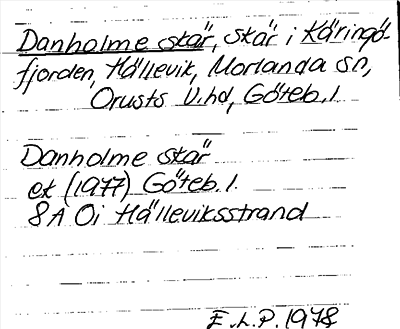 Danholme skär, skär i Käringö-
fjorden, Hällevik, Morlanda sn,
Orusts V.hd, Göteb. l.
Danholme skär
ek (1977) Göteb. l.
8A Oi Hälleviksstrand
E.L.P. 1978